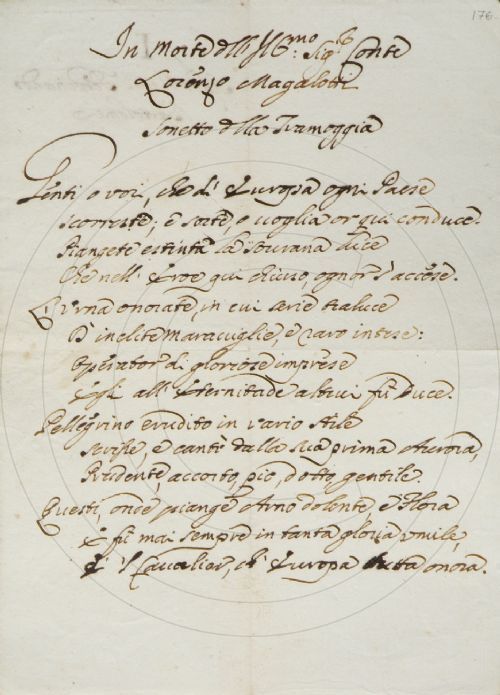 176
In Morte dell' Ill.mo: Sig.r Conte
Lorenzo Magalotti
Sonetto della Tramoggia
Genti o voi, che d' Europa ogni Paese
scorreste; e sorte, o voglia or qui conduce.
Piangete estinta la sovrana luce
Che nell' Eroe qui chiuso, ognor s' accese.
L' Urna onorate, in cui serie traluce
D' inclite maraviglie, e raro intese:
Operator di gloriose imprese
Egli all' Eternitade altrui fù Duce.
Pellegrino erudito in vario stile
scrisse, e cantò dalla sua prima Aurora,
Prudente, accorto, pio, dotto, gentile.
Questi, onde piange Arno dolente, e Flora
E fù mai sempre in tanta gloria umile,
È 'l Cavalier, ch' Europa tutta onora.